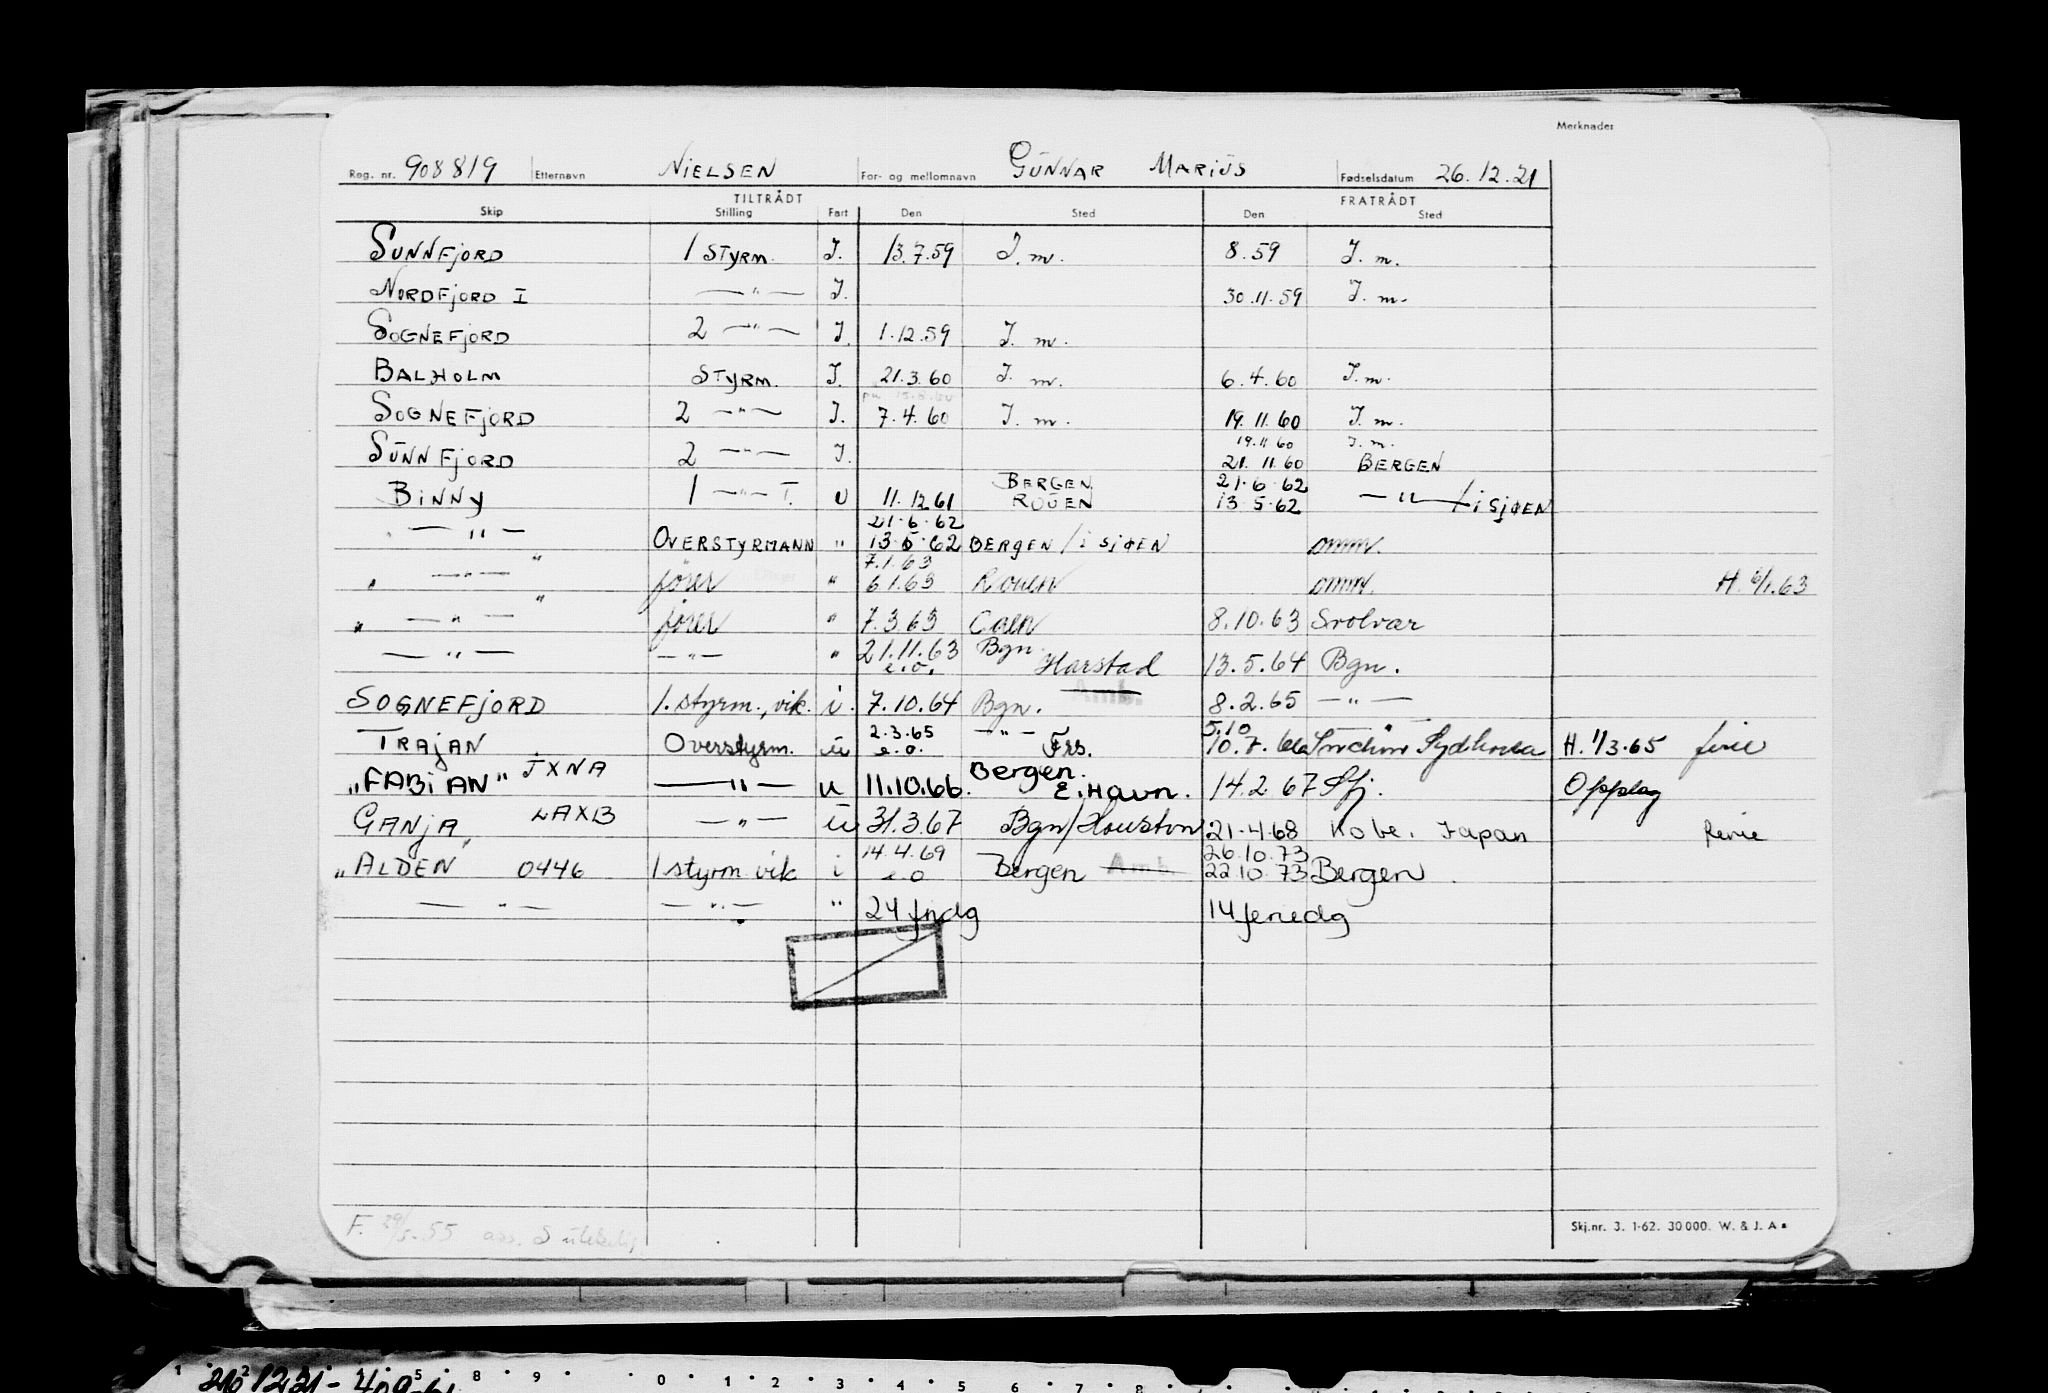 Merknader
Reg. nr. 908819 Etternavn NIELSEN For- og mellomnavn GUNNAR MARIUS Fødselsdatum 26.12.21
TILTRÅDT FRATRÅDT
Skip Stilling Fart Den Sted Den Sted
SUNNFJORD 1 STYRM. I. 13.7.59 I.m. 8.59 I.m.
NORDFJORD I —"— I. 30.11.59 I.m.
SOGNEFJORD 2 —"— I. 1.12.59 I.m.
BALHOLM STYRM. I. 21.3.60 I.m. 6.4.60 I.m.
SOGNEFJORD 2 —"— I. 7.4.60 I.m. 19.11.60 I.m.
19.11.60 I.m.
SUNNFJORD 2 —"— I. 21.11.60 BERGEN
BERGEN 21.6.62
BINNY 1 —"— T. U 11.12.61 ROUEN 13.5.62 —"— / i SJØEN
21.6.62
—"— OVERSTYRMANN " 13.5.62 BERGEN / i SJØEN omm.
7.1.63
" —"— " fører " 6.1.63 Rouen omm. H. 6/1.63
" —"— " fører " 7.3.63 Caen 8.10.63 Svolvær
—"— —"— " 21.11.63 Bgn.
e.o. Harstad 13.5.64 Bgn.
Amb.
SOGNEFJORD 1. styrm., vik. i. 7.10.64 Bgn. 8.2.65 —"—
2.3.65 —"— 5.10
TRAJAN Overstyrm. u e.o. Frs. 10.7.66 Inchon Sydkorea H. 1/3.65 ferie
Bergen.
"FABIAN" JXNA —"— u 11.10.66. E.Havn. 14.2 67 Sfj. Opplag
GANJA LAXB —"— u 31.3.67 Bgn/Houston 21.4.68 Kobe. Japan ferie
14.4.69 26.10.73
"ALDEN" 0446 1 styrm vik i e o Bergen Amb. 22.10.73 Bergen
—"— —"— " 24 fridg 14 feriedg
F. 29/5.55
Skj.nr. 3. 1-62. 30 000. W. & J. A